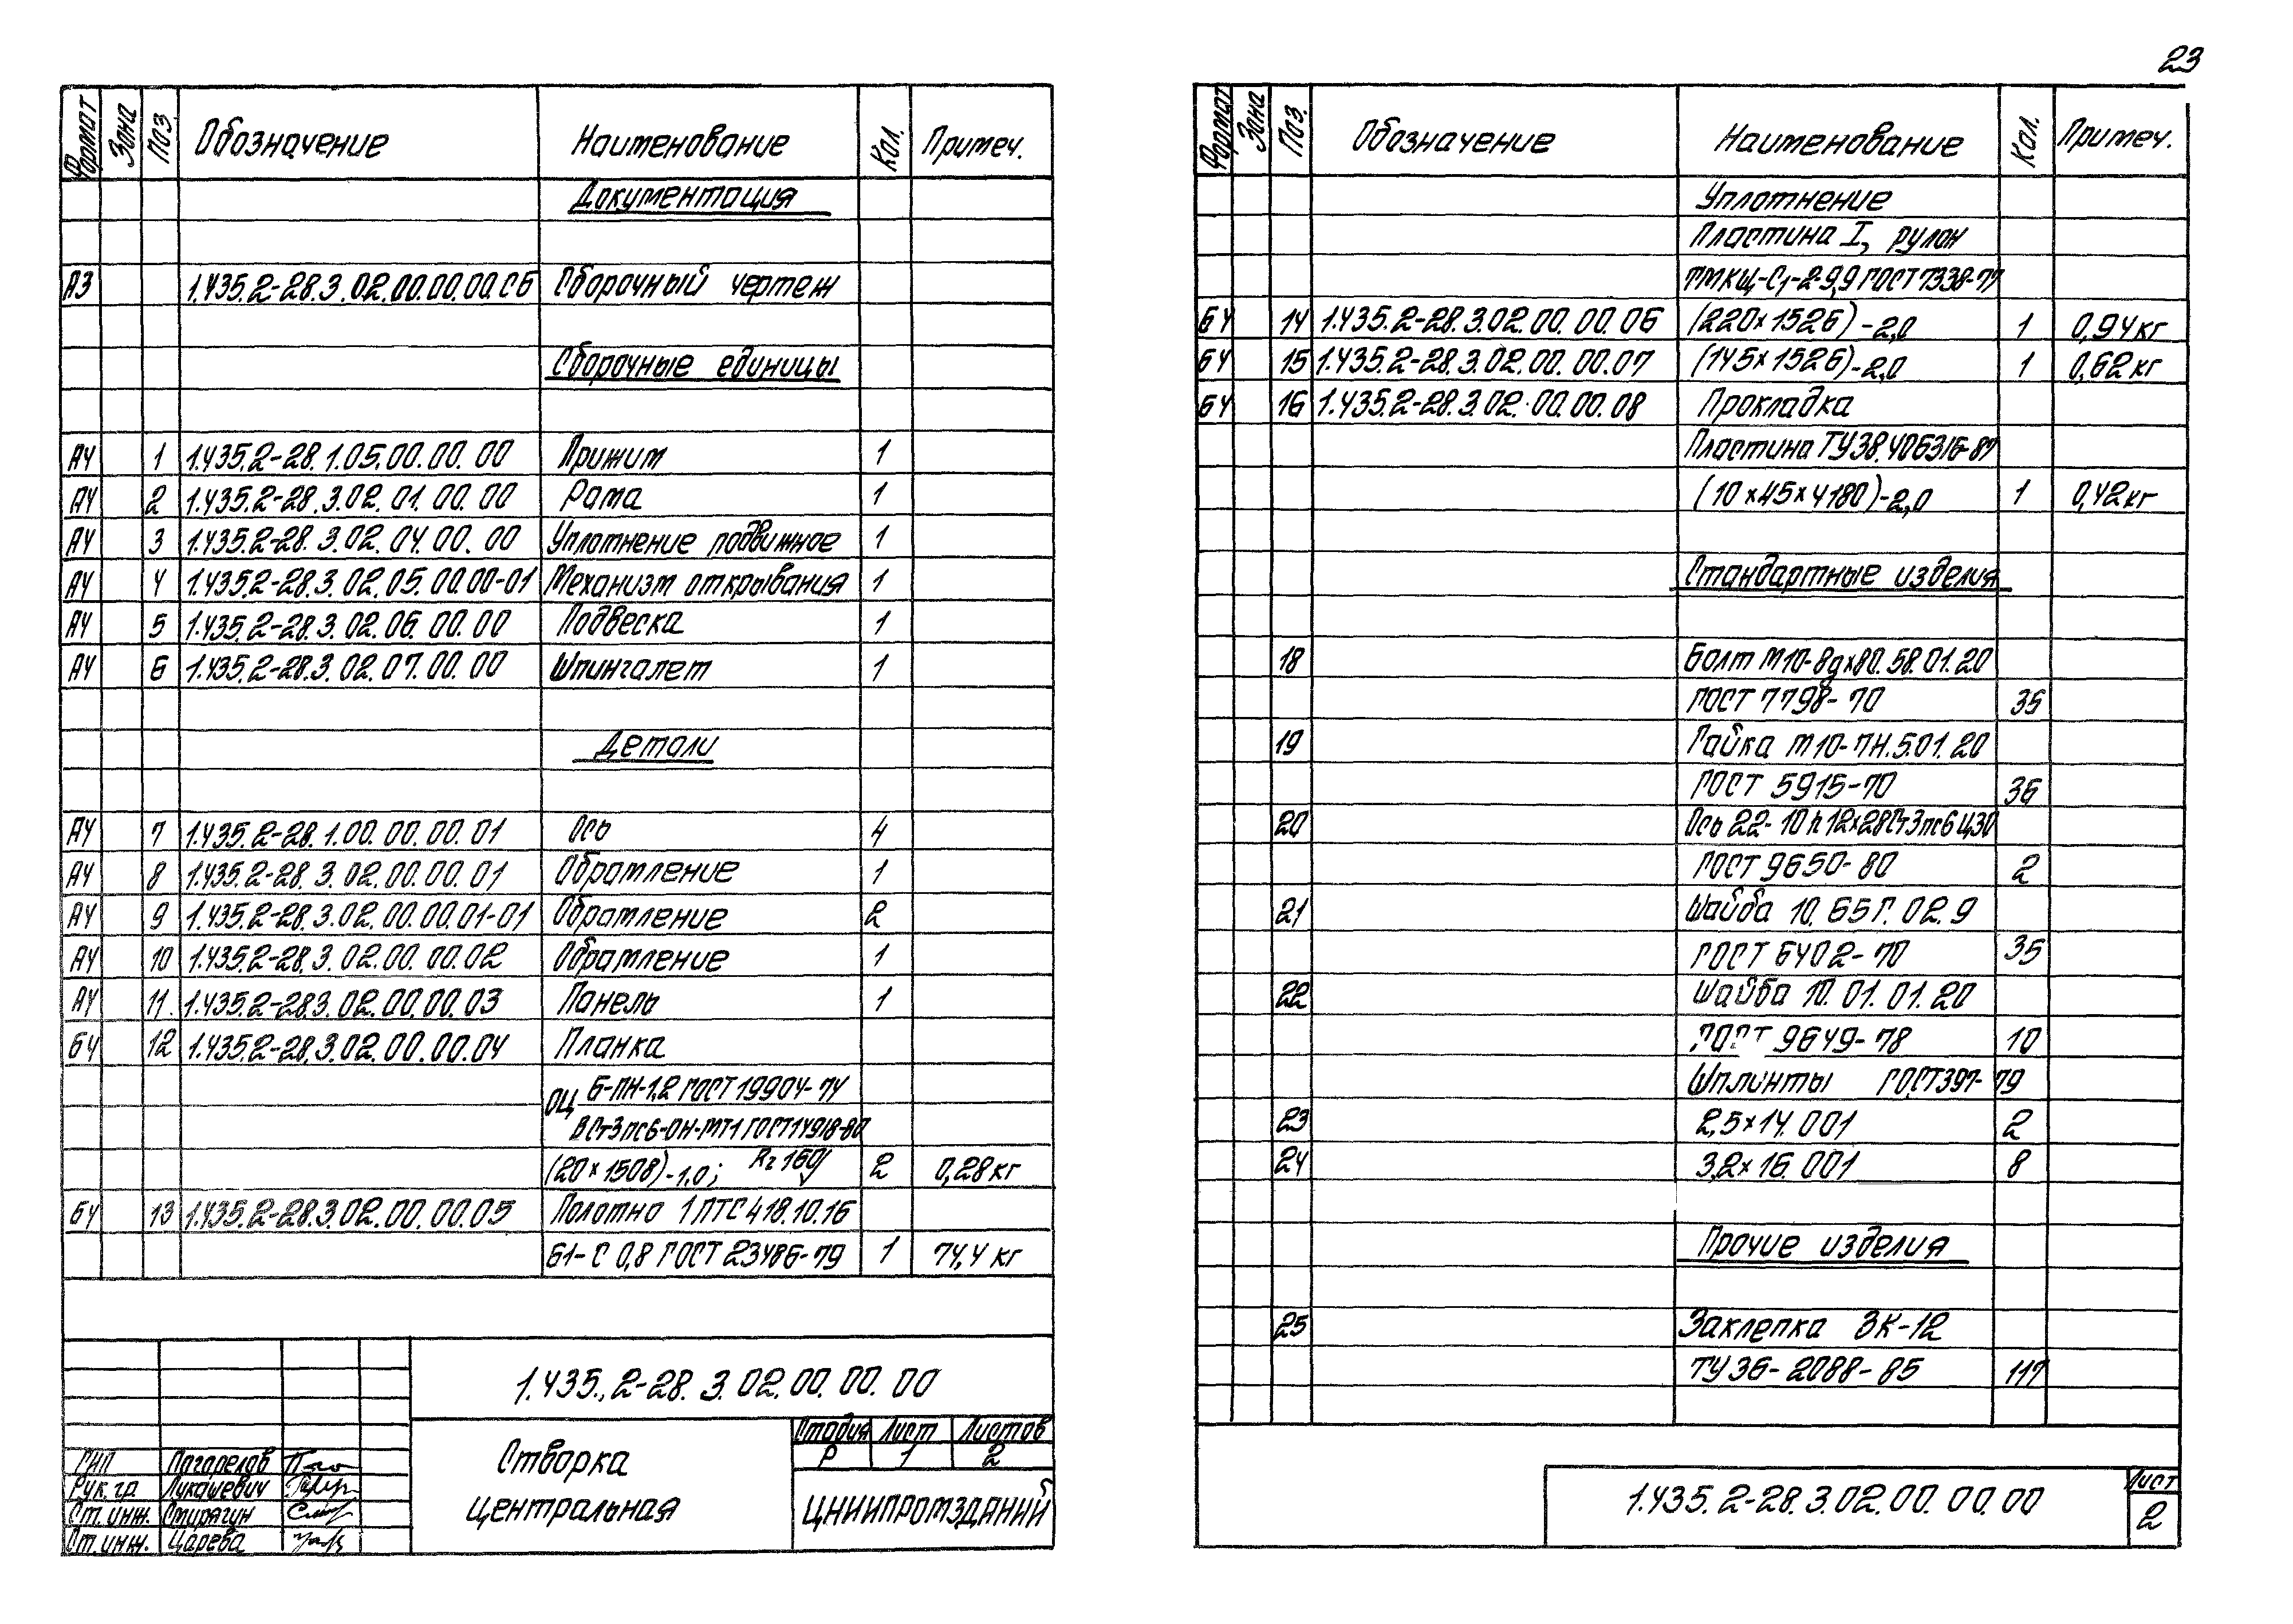 23
Формат Зона Поз. Обозначение Наименование Кол. Примеч.
Документация
А3 1.435.2-28.3.02.00.00.00.СБ Сборочный чертеж
Сборочные единицы
А4 1 1.435.2-28.1.05.00.00.00 Прижим 1
А4 2 1.435.2-28.3.02.01.00.00 Рама 1
А4 3 1.435.2-28.3.02.04.00.00 Уплотнение подвижное 1
А4 4 1.435.2-28.3.02.05.00.00-01 Механизм открывания 1
А4 5 1.435.2-28.3.02.06.00.00 Подвеска 1
А4 6 1.435.2-28.3.02.07.00.00 Шпингалет 1
Детали
А4 7 1.435.2-28.1.00.00.00.01 Ось 4
А4 8 1.435.2-28.3.02.00.00.01 Обрамление 1
А4 9 1.435.2-28.3.02.00.00.01-01 Обрамление 2
А4 10 1.435.2-28.3.02.00.00.02 Обрамление 1
А4 11. 1.435.2-28.3.02.00.00.03 Панель 1
БЧ 12 1.435.2-28.3.02.00.00.04 Планка
ОЦ Б-ПН-1,2 ГОСТ 19904-74
ВСт3пс6-ОН-МТ1 ГОСТ 14918-80
(20×1508)-1,0; Rz 160 2 0,28кг
БЧ 13 1.435.2-28.3.02.00.00.05 Полотно 1ПТС 418.10.16
Б1-С 0,8 ГОСТ 23486-79 1 74,4 кг
1.435.2-28.3.02.00.00.00
Створка
центральная
Стадия Лист Листов
Р 1 2
ЦНИИПРОМЗДАНИЙ
ГИП Погорелов
Рук.гр. Лукашевич
Ст.инж. Спирягин
Ст.инж. Царева
Формат Зона Поз. Обозначение Наименование Кол. Примеч.
Уплотнение
Пластина I, рулон
ТМКЩ-С1-2-9,9 ГОСТ 7338-77
БЧ 14 1.435.2-28.3.02.00.00.06 (220×1526)-2,0 1 0,94кг
БЧ 15 1.435.2-28.3.02.00.00.07 (145×1526)-2,0 1 0,62кг
БЧ 16 1.435.2-28.3.02.00.00.08 Прокладка
Пластина ТУ38.406316-87
(10×45×4180)-2,0 1 0,42кг
Стандартные изделия
18 Болт М10-8g×80.58.01.20
ГОСТ 7798-70 35
19 Гайка М10-7Н.5.01.20
ГОСТ 5915-70 36
20 Ось 22-10h12×28Ст3пс6Ц30
ГОСТ 9650-80 2
21 Шайба 10.65Г.02.9
ГОСТ 6402-70 35
22 Шайба 10.01.01.20
ГОСТ 9649-78 10
Шплинты ГОСТ397-79
23 2,5×14.001 2
24 3,2×16.001 8
Прочие изделия
25 Заклепка ЗК-12
ТУ36-2088-85 117
1.435.2-28.3.02.00.00.00
Лист
2